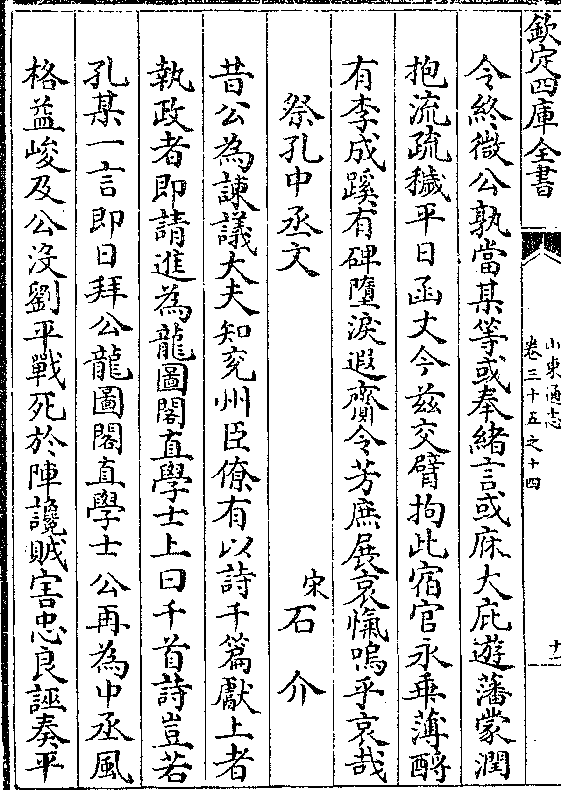 欽定四庫全書
山東通志
卷三十五之十四
十一
令終微公孰當某等或奉緒言或庥大庇遊藩蒙潤
抱流疏穢平日函丈今兹交臂拘此宿官永乖薄酹
有李成蹊有碑墮淚遐齎令芳庶展哀愾嗚乎哀哉
祭孔中丞文
宋石介
昔公為諫議大夫知兖州臣僚有以詩千篇獻上者
執政者即請進為龍圖閣直學士上曰千首詩豈若
孔某一言即日拜公龍圖閣直學士公再為中丞風
格益峻及公沒劉平戰死於陣讒賊害忠良誣奏平